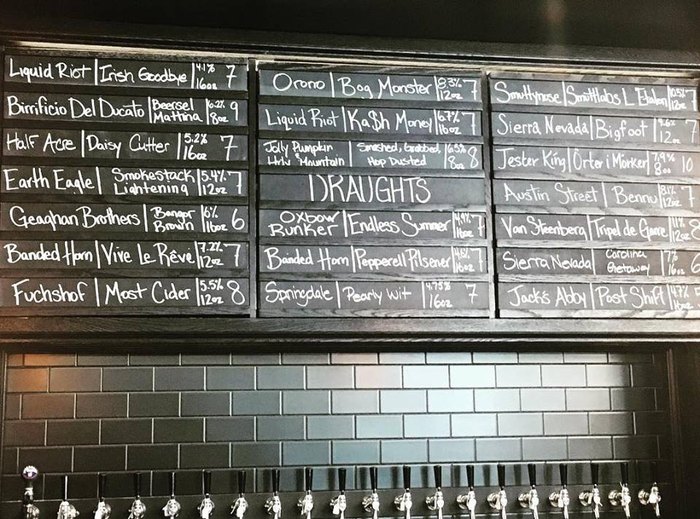 Liquid Riot | Irish Goodbye | 4.1% 16oz 7
Birrificio Del Ducato | Beersel Mattina | 6.2% 8oz 9
Half Acre | Daisy Cutter | 5.2% 16oz 7
Earth Eagle | Smokestack Lightening | 5.4% 12oz 7
Geaghan Brothers | Bangor Brown | 6% 16oz 6
Banded Horn | Vive Le Rêve | 7.2% 12oz 7
Fuchshof | Most Cider | 5.5% 12oz 8
Orono | Bog Monster | 8.3% 12oz 7
Liquid Riot | Ka$h Money | 6.7% 16oz 7
Jolly Pumpkin Holy Mountain | Smashed, Grabbed, Hop Dusted | 6.5% 8oz 8
DRAUGHTS
Oxbow Bunker | Endless Summer | 4.4% 16oz 7
Banded Horn | Pepperell Pilsener | 4.6% 16oz 7
Springdale | Pearly Wit | 4.75% 16oz 7
Smuttynose | Smuttlabs L'Etalon | 10.5% 12oz 7
Sierra Nevada | Bigfoot | 9.6% 12oz 7
Jester King | Orter i Mörker | 7.9% 8oz 10
Austin Street | Bennu | 8.1% 12oz 7
Van Steenberg | Tripel de Garre | 11% 12oz 8
Sierra Nevada | Carolina Getaway | 7% 16oz 6
Jack's Abby | Post Shift | 4.7% 16oz